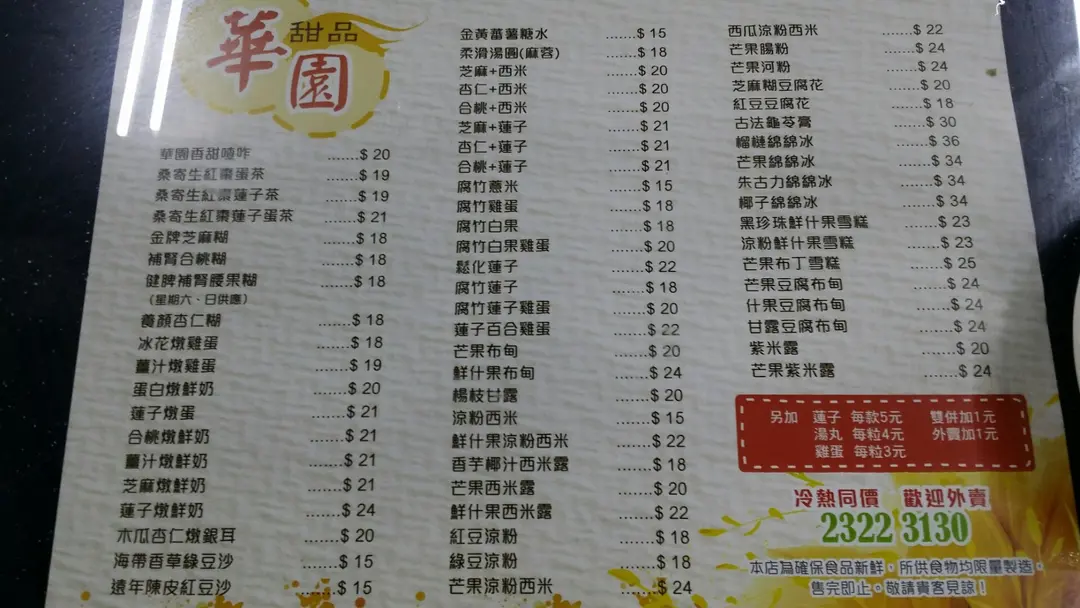 華園 甜品
華園香甜喳咋 .......$ 20
桑寄生紅棗蛋茶 .......$ 19
桑寄生紅棗蓮子茶 .......$ 19
桑寄生紅棗蓮子蛋茶 .......$ 21
金牌芝麻糊 .......$ 18
補腎合桃糊 .......$ 18
健脾補腎腰果糊 .......$ 18
(星期六、日供應)
養顏杏仁糊 .......$ 18
冰花燉雞蛋 .......$ 18
薑汁燉雞蛋 .......$ 19
蛋白燉鮮奶 .......$ 20
蓮子燉蛋 .......$ 21
合桃燉鮮奶 .......$ 21
薑汁燉鮮奶 .......$ 21
芝麻燉鮮奶 .......$ 21
蓮子燉鮮奶 .......$ 24
木瓜杏仁燉銀耳 .......$ 20
海帶香草綠豆沙 .......$ 15
遠年陳皮紅豆沙 .......$ 15
金黃蕃薯糖水 .......$ 15
柔滑湯圓(麻蓉) .......$ 18
芝麻+西米 .......$ 20
杏仁+西米 .......$ 20
合桃+西米 .......$ 20
芝麻+蓮子 .......$ 21
杏仁+蓮子 .......$ 21
合桃+蓮子 .......$ 21
腐竹薏米 .......$ 15
腐竹雞蛋 .......$ 18
腐竹白果 .......$ 18
腐竹白果雞蛋 .......$ 20
鬆化蓮子 .......$ 22
腐竹蓮子 .......$ 18
腐竹蓮子雞蛋 .......$ 20
蓮子百合雞蛋 .......$ 22
芒果布甸 .......$ 20
鮮什果布甸 .......$ 24
楊枝甘露 .......$ 20
涼粉西米 .......$ 15
鮮什果涼粉西米 .......$ 22
香芋椰汁西米露 .......$ 18
芒果西米露 .......$ 20
鮮什果西米露 .......$ 22
紅豆涼粉 .......$ 18
綠豆涼粉 .......$ 18
芒果涼粉西米 .......$ 24
西瓜涼粉西米 .......$ 22
芒果腸粉 .......$ 24
芒果河粉 .......$ 24
芝麻糊豆腐花 .......$ 20
紅豆豆腐花 .......$ 18
古法龜苓膏 .......$ 30
榴槤綿綿冰 .......$ 36
芒果綿綿冰 .......$ 34
朱古力綿綿冰 .......$ 34
椰子綿綿冰 .......$ 34
黑珍珠鮮什果雪糕 .......$ 23
涼粉鮮什果雪糕 .......$ 23
芒果布丁雪糕 .......$ 25
芒果豆腐布甸 .......$ 24
什果豆腐布甸 .......$ 24
甘露豆腐布甸 .......$ 24
紫米露 .......$ 20
芒果紫米露 .......$ 24
另加 蓮子 每款5元 雙併加1元
湯丸 每粒4元 外賣加1元
雞蛋 每粒3元
冷熱同價 歡迎外賣
2322 3130
本店為確保食品新鮮，所供食物均限量製造，
售完即止，敬請貴客見諒！